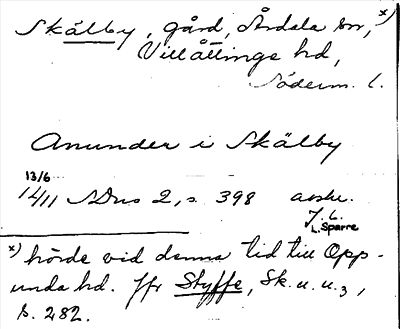 Skälby, gård, Årdala sn, x)
Villåttinge hd,
Söderm. l.
Anunder i Skälby
13/6
1411 SDns 2, s. 398 avskr.
J. L.
L. Sparre
x) hörde vid denna tid till Opp-
unda hd. Jfr Styffe, Sk. u. u. 3,
s. 282.